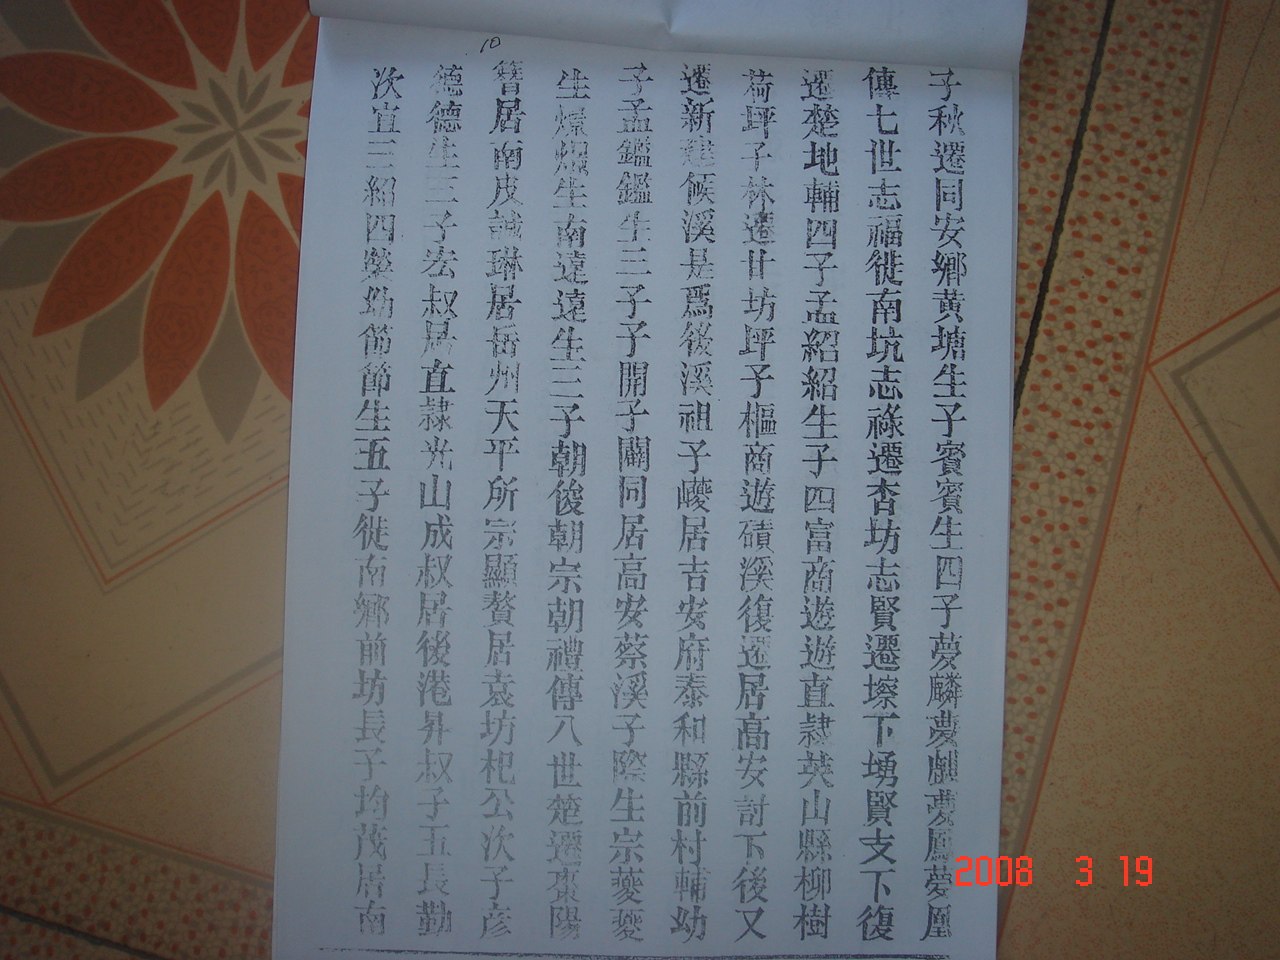 子秋遷同安鄉黃塘生子賓賓生四子夢麟夢麒夢鳳夢凰
傳七世志福徙南坑志祿遷杏坊志賢遷塜下堨賢支下復
遷楚地輔四子孟紹紹生子四富商遊遊直隷英山縣柳樹
荷坪子林遷廿坊坪子樞商遊磧溪復遷居高安討下後又
遷新建候溪是爲後溪祖子巙居吉安府泰和縣前村輔幼
子孟鑑鑑生三子子開子闢同居高安蔡溪子際生宗夔夔
生熿生南遠遠生三子朝俊朝宗朝禮傳八世楚遷棗陽
簪居南皮誠琳居岳州天平所宗顯贅居袁坊杞公次子彦
德德生三子宏叔居直隷光山成叔居後港昇叔子五長勤
次宣三紹四節節生五子徙南鄉前坊長子均茂居南
10
2008 3 19